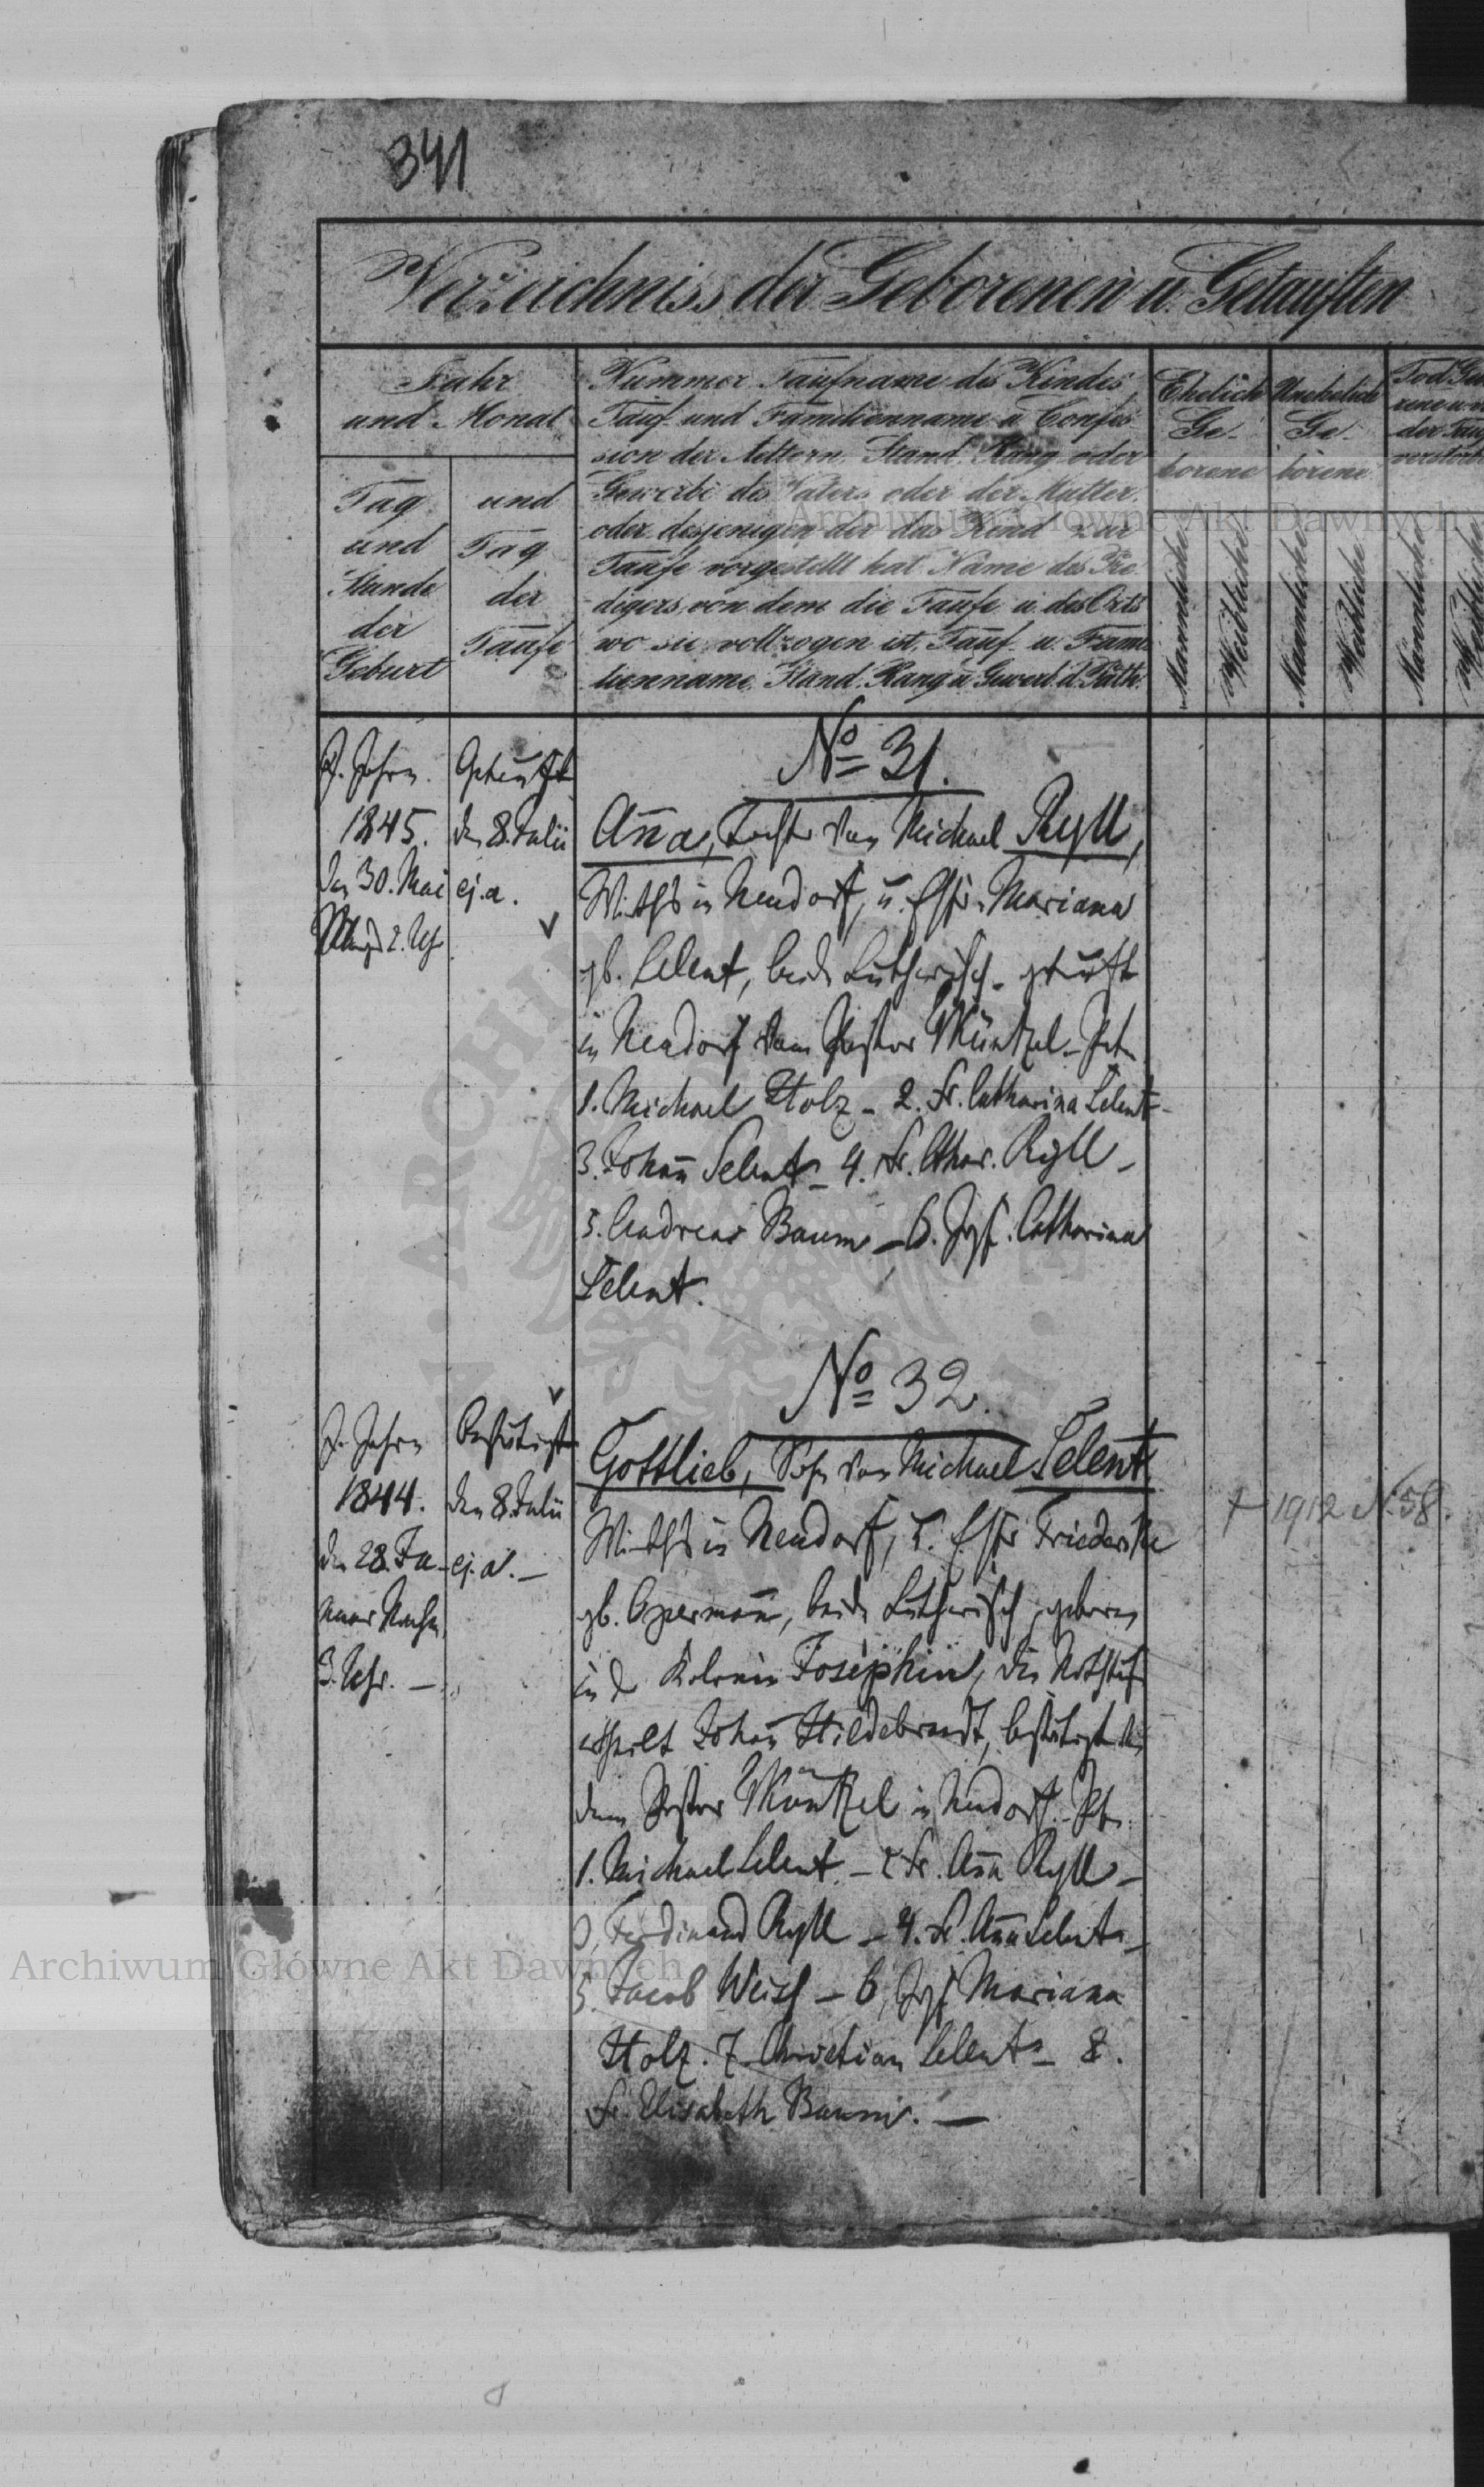 341
Verzeichniss der Geborenen u. Getauften
Jahr
und Monat
Tag
und
Stunde
der
Geburt
und
Tag
der
Taufe
Nummer Taufname des Kindes
Tauf- und Familienname u Confes
sion der Aeltern, Stand, Rang oder
Gewerbe des Vaters oder der Mutter,
oder desjenigen der das Kind zur
Taufe vorgestellt hat Name des Pre
digers von dem die Taufe u des Orts
wo sie vollzogen ist, Tauf- u. Fami
lienname, Stand, Rang u Gewerb. d. Path.
Ehelich
Ge-
borene
Unehelich
Ge-
borene
Männliche
Weibliche
Männliche
Weibliche
Männliche
J. Jahre
1845.
den 30. Mai
2. Uhr
Getauft
den 8. Julii
ej. a.
№ 31.
Anna, Tochter von Michael Ryll,
Wirths in Neudorf, u. Mariana
gb. Selent, beide Lutherisch - getauft
in Neudorf vom Pastor Müntzel -
1. Michael Stolz - 2. Fr. Catharina Selent -
3. Johann Selent - 4. Fr. Cthar. Ryll -
5. Andreas Baum - 6. Jgf. Catharina
Selent.
J. Jahre
1844.
den 28. Ja-
nuar Nachm.
3. Uhr. -
Bestätigt
den 8. Julii
ej. a. -
№ 32.
Gottlieb, Sohn von Michael Selent
Wirths in Neudorf, u. Friederike
gb. Opermann, beide Lutherisch, geboren
in der Kolonie Josephin, die Nothtaufe
ertheilt Johann Hildebrandt, bestätigt
dem Pastor Müntzel in Neudorf -
1. Michael Selent. - 2 Fr. Anna Ryll -
3. Ferdinand Ryll - 4. Fr. Anna Selent -
5. Jacob Weiss - 6, Jgf Mariana
Stolz. 7. Christian Selent - 8.
Fr. Elisabeth Baum. -
† 1912 N. 58.
Archiwum Główne Akt Dawnych
Archiwum Główne Akt Dawnych